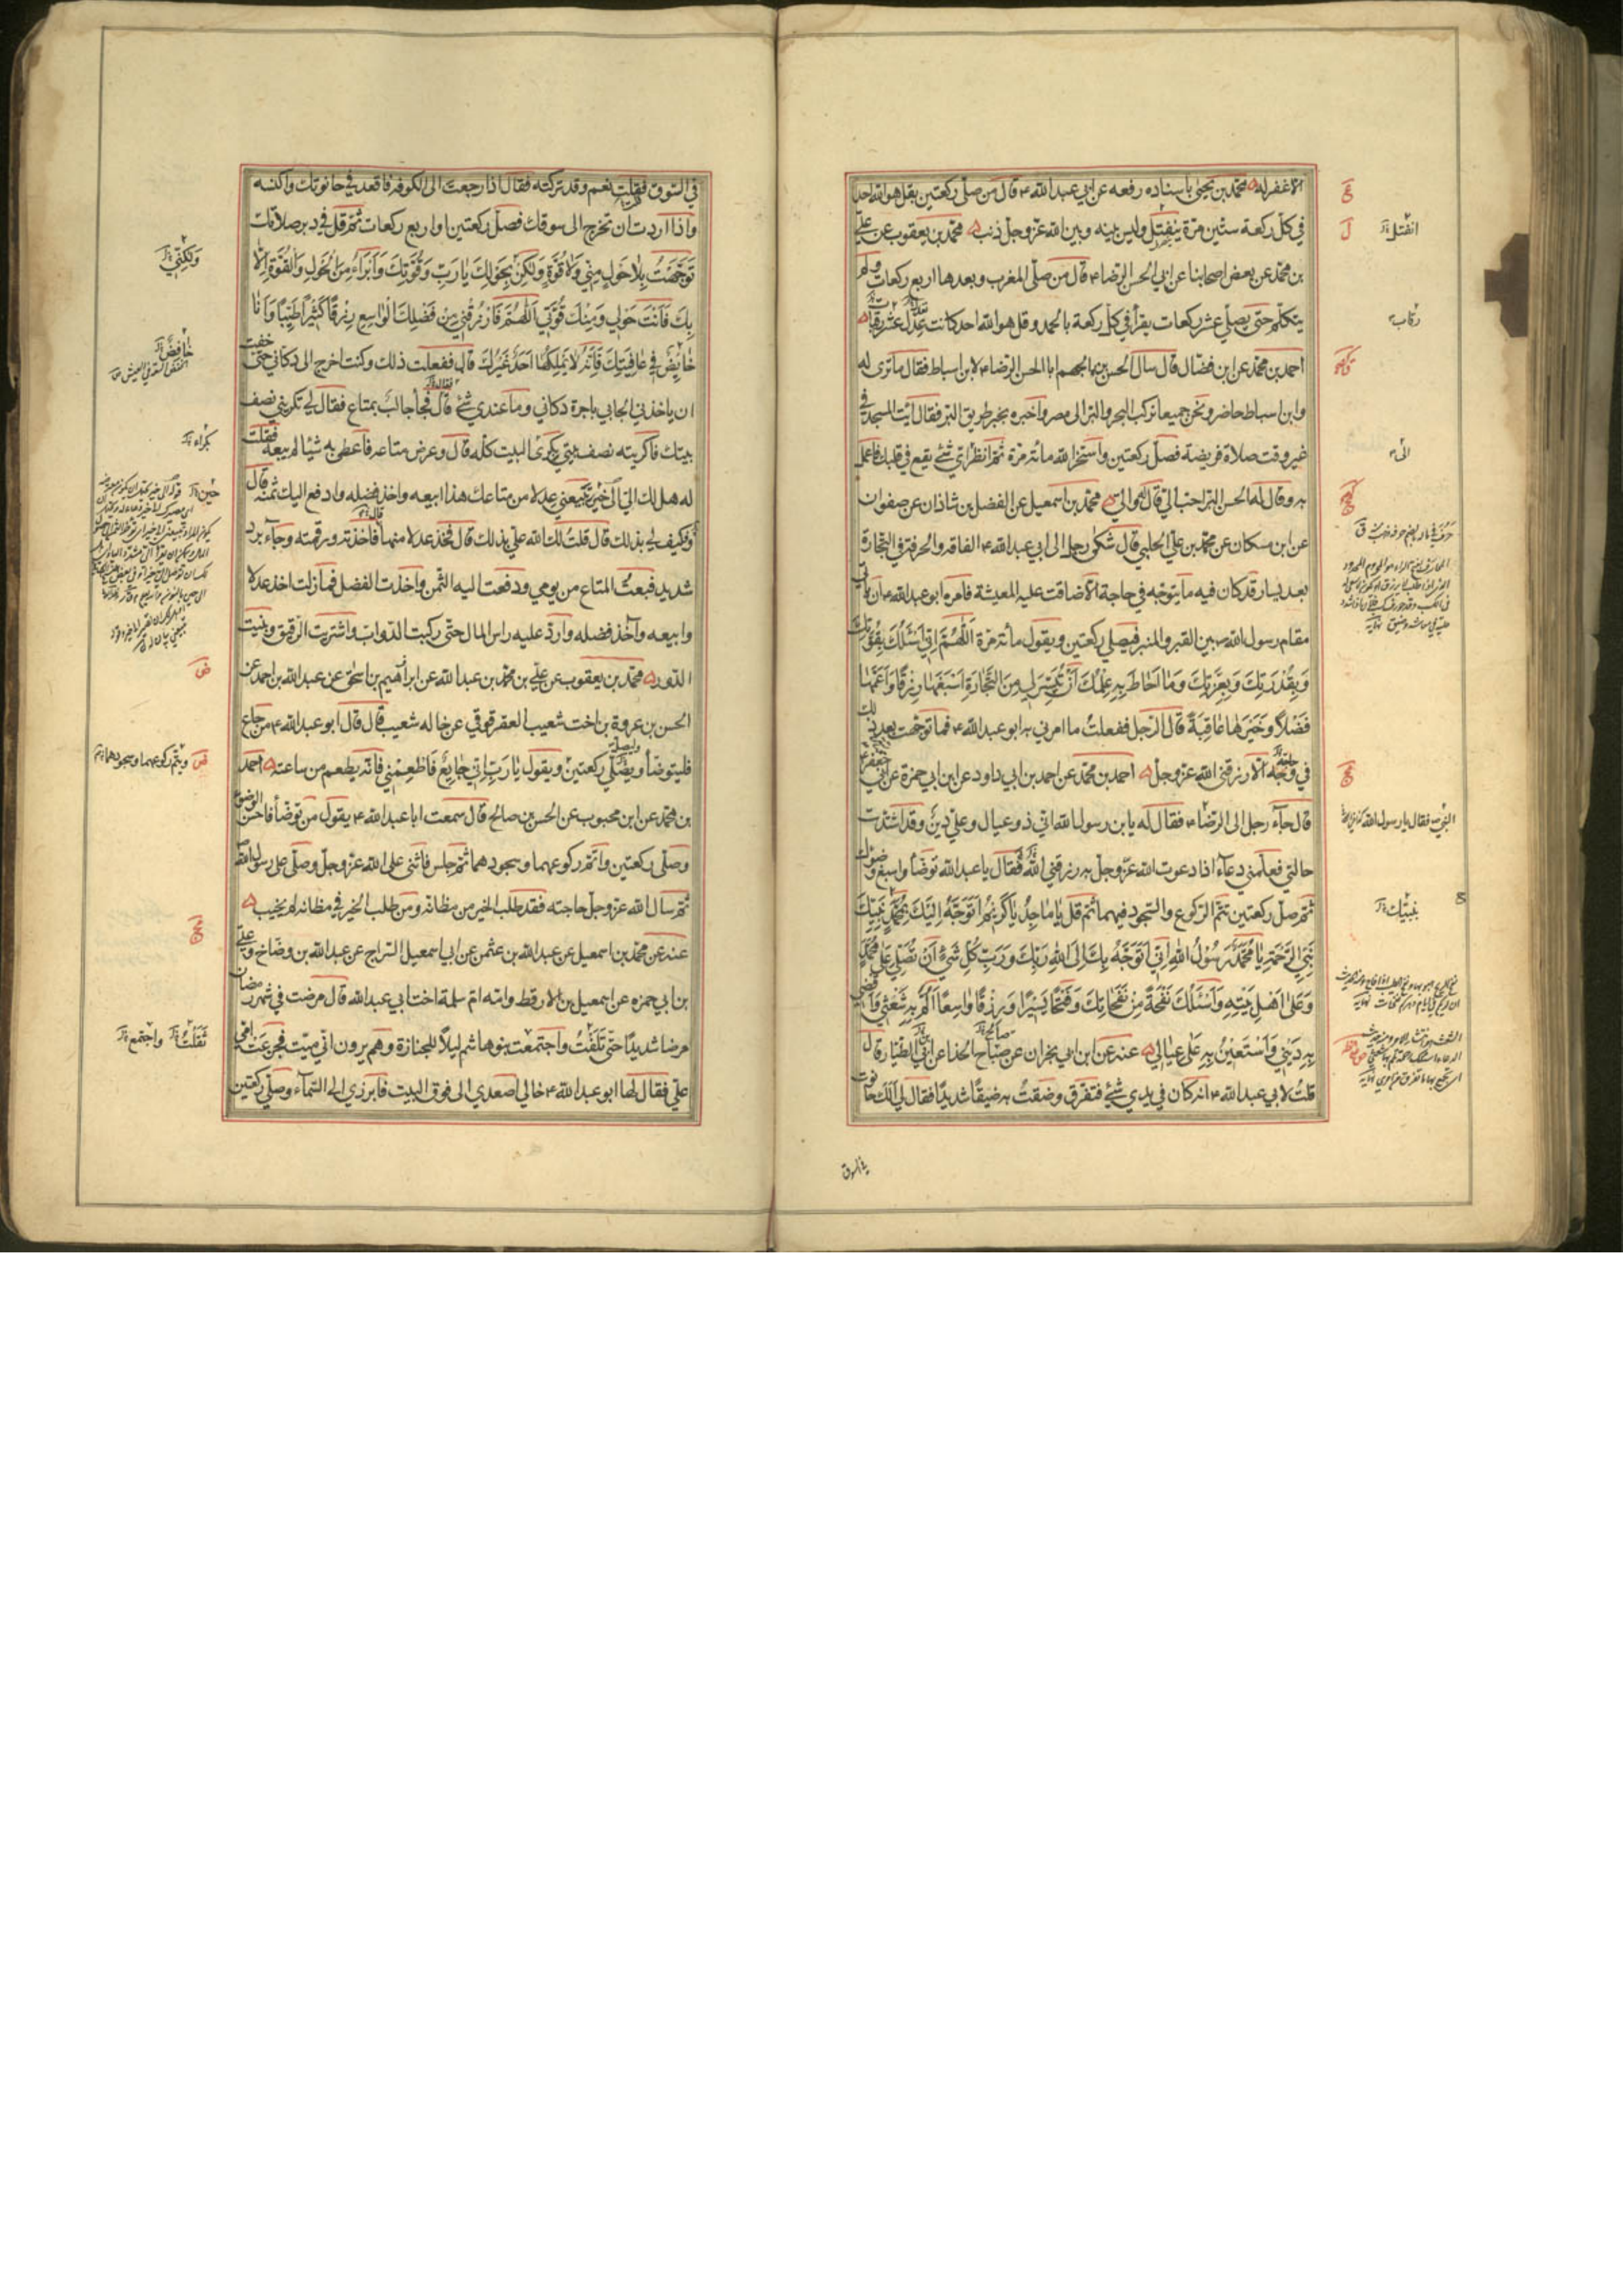 الا غفر له محمد بن يحيى باسناده رفعه عن ابي عبد الله ع قال من صلى ركعتين بقل هو الله احد
في كل ركعة ستين مرة ينفتل وليس بينه وبين الله عز وجل ذنب محمد بن يعقوب عن علي
بن محمد عن بعض اصحابنا عن ابي الحسن الرضا ع قال من صلى المغرب وبعدها اربع ركعات ولم
يتكلم حتى يصلي عشر ركعات يقرأ في كل ركعة بالحمد وقل هو الله احد كانت عدل عشر رقاب
احمد بن محمد عن ابن فضال قال سال الحسن بن الجهم ابا الحسن الرضا ع لابن اسباط فقال ما ترى له
وابن اسباط حاضر ونحن جميعا نركب البحر والبر الى مصر واخبره بخبر طريق البر فقال ائت المسجد في
غير وقت صلاة فريضة فصل ركعتين واستخر الله مائة مرة ثم انظر اي شئ يقع في قلبك فاعمل
به وقال له الحسن البر احب الي قال له والي محمد بن اسمعيل عن الفضل بن شاذان عن صفوان
عن ابن مسكان عن محمد بن علي الحلبي قال شكى رجل الى ابي عبد الله ع الفاقة والحرفة في التجارة
بعد يسار قد كان فيه ما يتوجه في حاجة الا ضاقت عليه المعيشة فامره ابو عبد الله ع ان ياتي
مقام رسول الله ص بين القبر والمنبر فيصلي ركعتين ويقول مائة مرة اَللّٰهُمَّ اِنّي اَسْئَلُكَ بِقُوَّتِكَ
وَبِقُدْرَتِكَ وَبِعِزَّتِكَ وَمَا اَحَاطَ بِهِ عِلْمُكَ اَنْ تُيَسِّرَ لي مِنَ التِّجَارَةِ اَسْبَغَهَا رِزْقًا وَاَعَمَّهَا
فَضْلًا وَخَيْرَهَا عَاقِبَةً قال الرجل ففعلت ما امرني به ابو عبد الله ع فما توجهت بعد ذلك
في وجه الا رزقني الله عز وجل احمد بن محمد عن احمد بن ابي داود عن ابن ابي حمزة عن ابي جعفر ع
قال جاء رجل الى الرضا ع فقال له يابن رسول الله اني ذو عيال وعلي دين وقد اشتدت
حالتي فعلمني دعاء اذا دعوت الله عز وجل به رزقني الله فقال يا عبد الله توضأ واسبغ وضوءك
ثم صل ركعتين تتم الركوع والسجود فيهما ثم قل يَا مَاجِدُ يَا كَرِيمُ اَتَوَجَّهُ اِلَيْكَ بِمُحَمَّدٍ نَبِيِّكَ
نَبِيِّ الرَّحْمَةِ يَا مُحَمَّدُ يَا رَسُولَ اللهِ اِنّي اَتَوَجَّهُ بِكَ اِلَى اللهِ رَبِّكَ وَرَبِّ كُلِّ شَيْءٍ اَنْ تُصَلِّيَ عَلى مُحَمَّدٍ
وَعَلى اَهْلِ بَيْتِهِ وَاَسْئَلُكَ نَفْحَةً مِنْ نَفَحَاتِكَ وَفَتْحًا يَسِيرًا وَرِزْقًا وَاسِعًا اَلُمُّ بِهِ شَعْثي وَاَقْضي
بِهِ دَيْني وَاَسْتَعينُ بِهِ عَلى عِيَالي عنه عن ابن ابي نجران عن صباح الحذا عن ابي الطيار قال
قلت لابي عبد الله ع انه كان في يدي شئ فتفرق وضقت به ضيقا شديدا فقال لي الك حانوت
في السوق
في السوق فقلت نعم وقد تركته فقال اذا رجعت الى الكوفة فاقعد في حانوتك واكنسه
واذا اردت ان تخرج الى سوقك فصل ركعتين او اربع ركعات ثم قل في دبر صلاتك
تَوَجَّهْتُ بِلَا حَوْلٍ مِنّي وَلَا قُوَّةٍ وَلكِنْ بِحَوْلِكَ يَا رَبِّ وَقُوَّتِكَ وَاَبْرَءُ مِنَ الْحَوْلِ وَالْقُوَّةِ اِلَّا
بِكَ فَاَنْتَ حَوْلي وَمِنْكَ قُوَّتي اَللّٰهُمَّ فَارْزُقْني مِنْ فَضْلِكَ الْوَاسِعِ رِزْقًا كَثيرًا طَيِّبًا وَاَنَا
خَافِضٌ في عَافِيَتِكَ فَاِنَّهُ لَا يَمْلِكُهَا اَحَدٌ غَيْرُكَ قال ففعلت ذلك وكنت اخرج الى دكاني حتى خفت
ان ياخذني الجابي باجرة دكاني وما عندي شئ قال فجاء جالب بمتاع فقال لي تكريني نصف
بيتك فاكريته نصف بيتي بكرى البيت كله قال وعرض متاعه فاعطي به شيئا لم يبعه فقلت
له هل لك الي خير تبيعني عدلا من متاعك هذا ابيعه واخذ فضله وادفع اليك ثمنه قال
وكيف لي بذلك قال قلت لك الله علي بذلك قال فخذ عدلا منها فاخذته ورقمته وجاء برد
شديد فبعت المتاع من يومي ودفعت اليه الثمن واخذت الفضل فما زلت اخذ عدلا
وابيعه وآخذ فضله وارد عليه راس المال حتى ركبت الدواب واشتريت الرقيق وبنيت
الدور محمد بن يعقوب عن علي بن محمد بن عبد الله عن ابراهيم بن اسحق عن عبد الله بن احمد عن
الحسن بن عروة بن اخت شعيب العقرقوقي عن خاله شعيب قال قال ابو عبد الله ع من جاع
فليتوضأ ويصلي ركعتين ويقول يَا رَبِّ اِنّي جَايِعٌ فَاَطْعِمْني فانه يطعم من ساعته احمد
بن محمد عن ابن محبوب عن الحسن بن صالح قال سمعت ابا عبد الله ع يقول من توضأ فاحسن الوضوء
وصلى ركعتين واتم ركوعهما وسجودهما ثم جلس فاثنى على الله عز وجل وصلى على رسول الله
ثم سال الله عز وجل حاجته فقد طلب الخير من مظانه ومن طلب الخير في مظانه لم يخيب
عنه عن محمد بن اسمعيل عن عبد الله بن عثمن عن ابي اسمعيل السراج عن عبد الله بن وضاح وعلي
بن ابي حمزه عن اسمعيل بن الارقط وامه ام سلمة اخت ابي عبد الله قال مرضت في شهر رمضان
مرضا شديدا حتى تلفت واجتمعت بنو هاشم ليلا للجنازة وهم يرون اني ميت فجزعت امي
علي فقال لها ابو عبد الله ع خالي اصعدي الى فوق البيت فابرزي الى السماء وصلي ركعتين